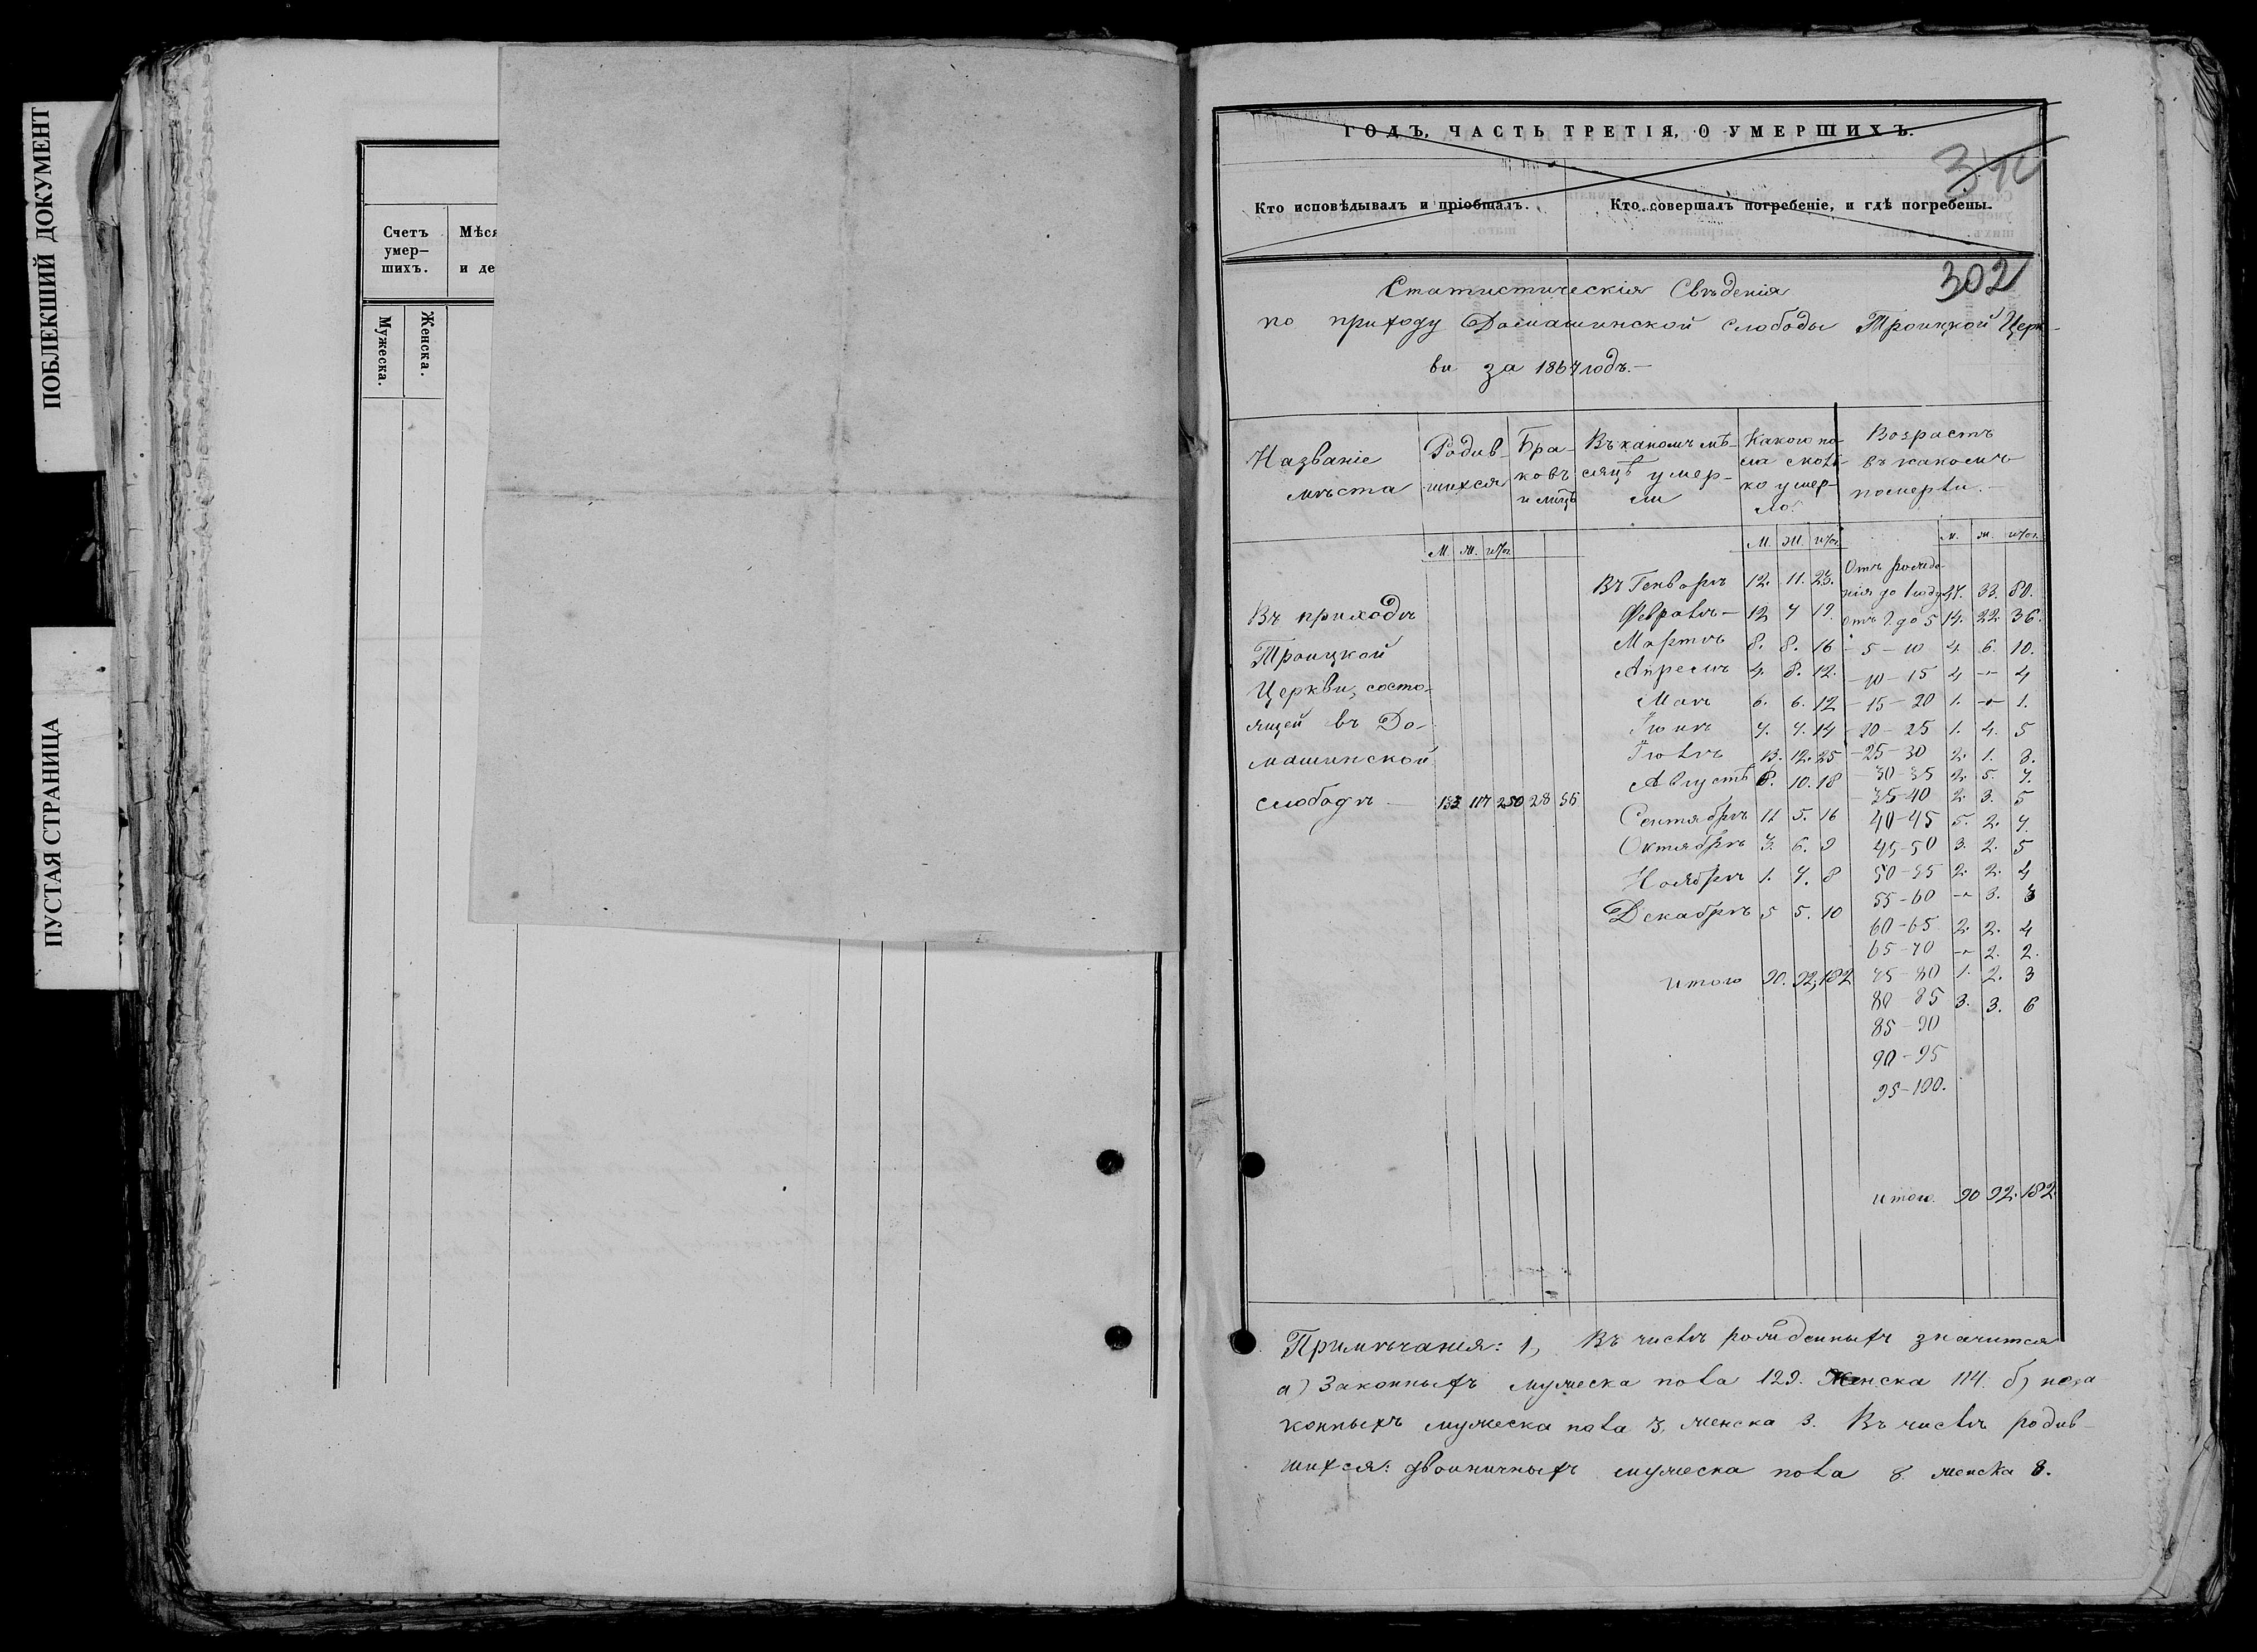 ПОБЛЕКШИЙ ДОКУМЕНТ
ПУСТАЯ СТРАНИЦА
Счетъ умер-
шихъ.
Мѣся
и де
Мужеска.
Женска.
ГОДЪ, ЧАСТЬ ТРЕТІЯ, О УМЕРШИХЪ.
Кто исповѣдывалъ и пріобщалъ.
Кто совершалъ погребеніе, и гдѣ погребены.
302
Статистическія Свѣденія
по приходу Домашинской слободы Троицкой Церк-
ви за 1864 годъ.—
Названіе
мѣста
Родив-
шихся
Бра-
ковъ
и лицъ
Въ какомъ мѣ-
сяцѣ умер-
ли
Какого по-
ла сколь-
ко умер-
ло.
Возрастъ
въ какомъ
померли.
М. Ж. итог.
М. Ж. итог.
м. ж. итог.
Въ приходѣ
Троицкой
Церкви, состо-
ящей въ До-
машинской
слободѣ — 133 117 250 28 56
Въ Генварѣ 12. 11. 23.
Февралѣ — 12 7 19.
Мартѣ 8. 8. 16
Апрелѣ 4. 8. 12.
Маѣ 6. 6. 12
Іюнѣ 7. 7. 14
Іюлѣ 13. 12. 25
Августѣ 8. 10. 18
Сентябрѣ 11 5. 16
Октябрѣ 3. 6. 9
Ноябрѣ 1. 7. 8
Декабрѣ 5 5. 10
итого 90. 92. 182
Отъ рожде-
нія до 1 году 47. 33. 80.
отъ 1 до 5 14. 22. 36.
— 5 — 10 4. 6. 10.
— 10 — 15 4 — 4
— 15 — 20 1. — 1.
— 20 — 25 1. 4. 5
— 25 — 30 2. 1. 3.
— 30 — 35 2. 5. 7.
— 35 — 40 2. 3. 5
40 — 45 5. 2. 7.
45 — 50 3. 2. 5
50 — 55 2. 2. 4
55 — 60 — 3. 3
60 — 65 2. 2. 4
65 — 70 — 2. 2.
75 — 80 1. 2. 3
80 — 85 3. 3. 6
85 — 90
90 — 95
95 — 100.
итого. 90 92. 182.
Примѣчанія: 1, Въ числѣ рожденныхъ значится
а) Законныхъ мужеска пола 129. Женска 114. б) неза
конныхъ мужеска пола 3, женска 3. Въ числѣ родив-
шихся: двоиничныхъ мужеска пола 8. женска 8.